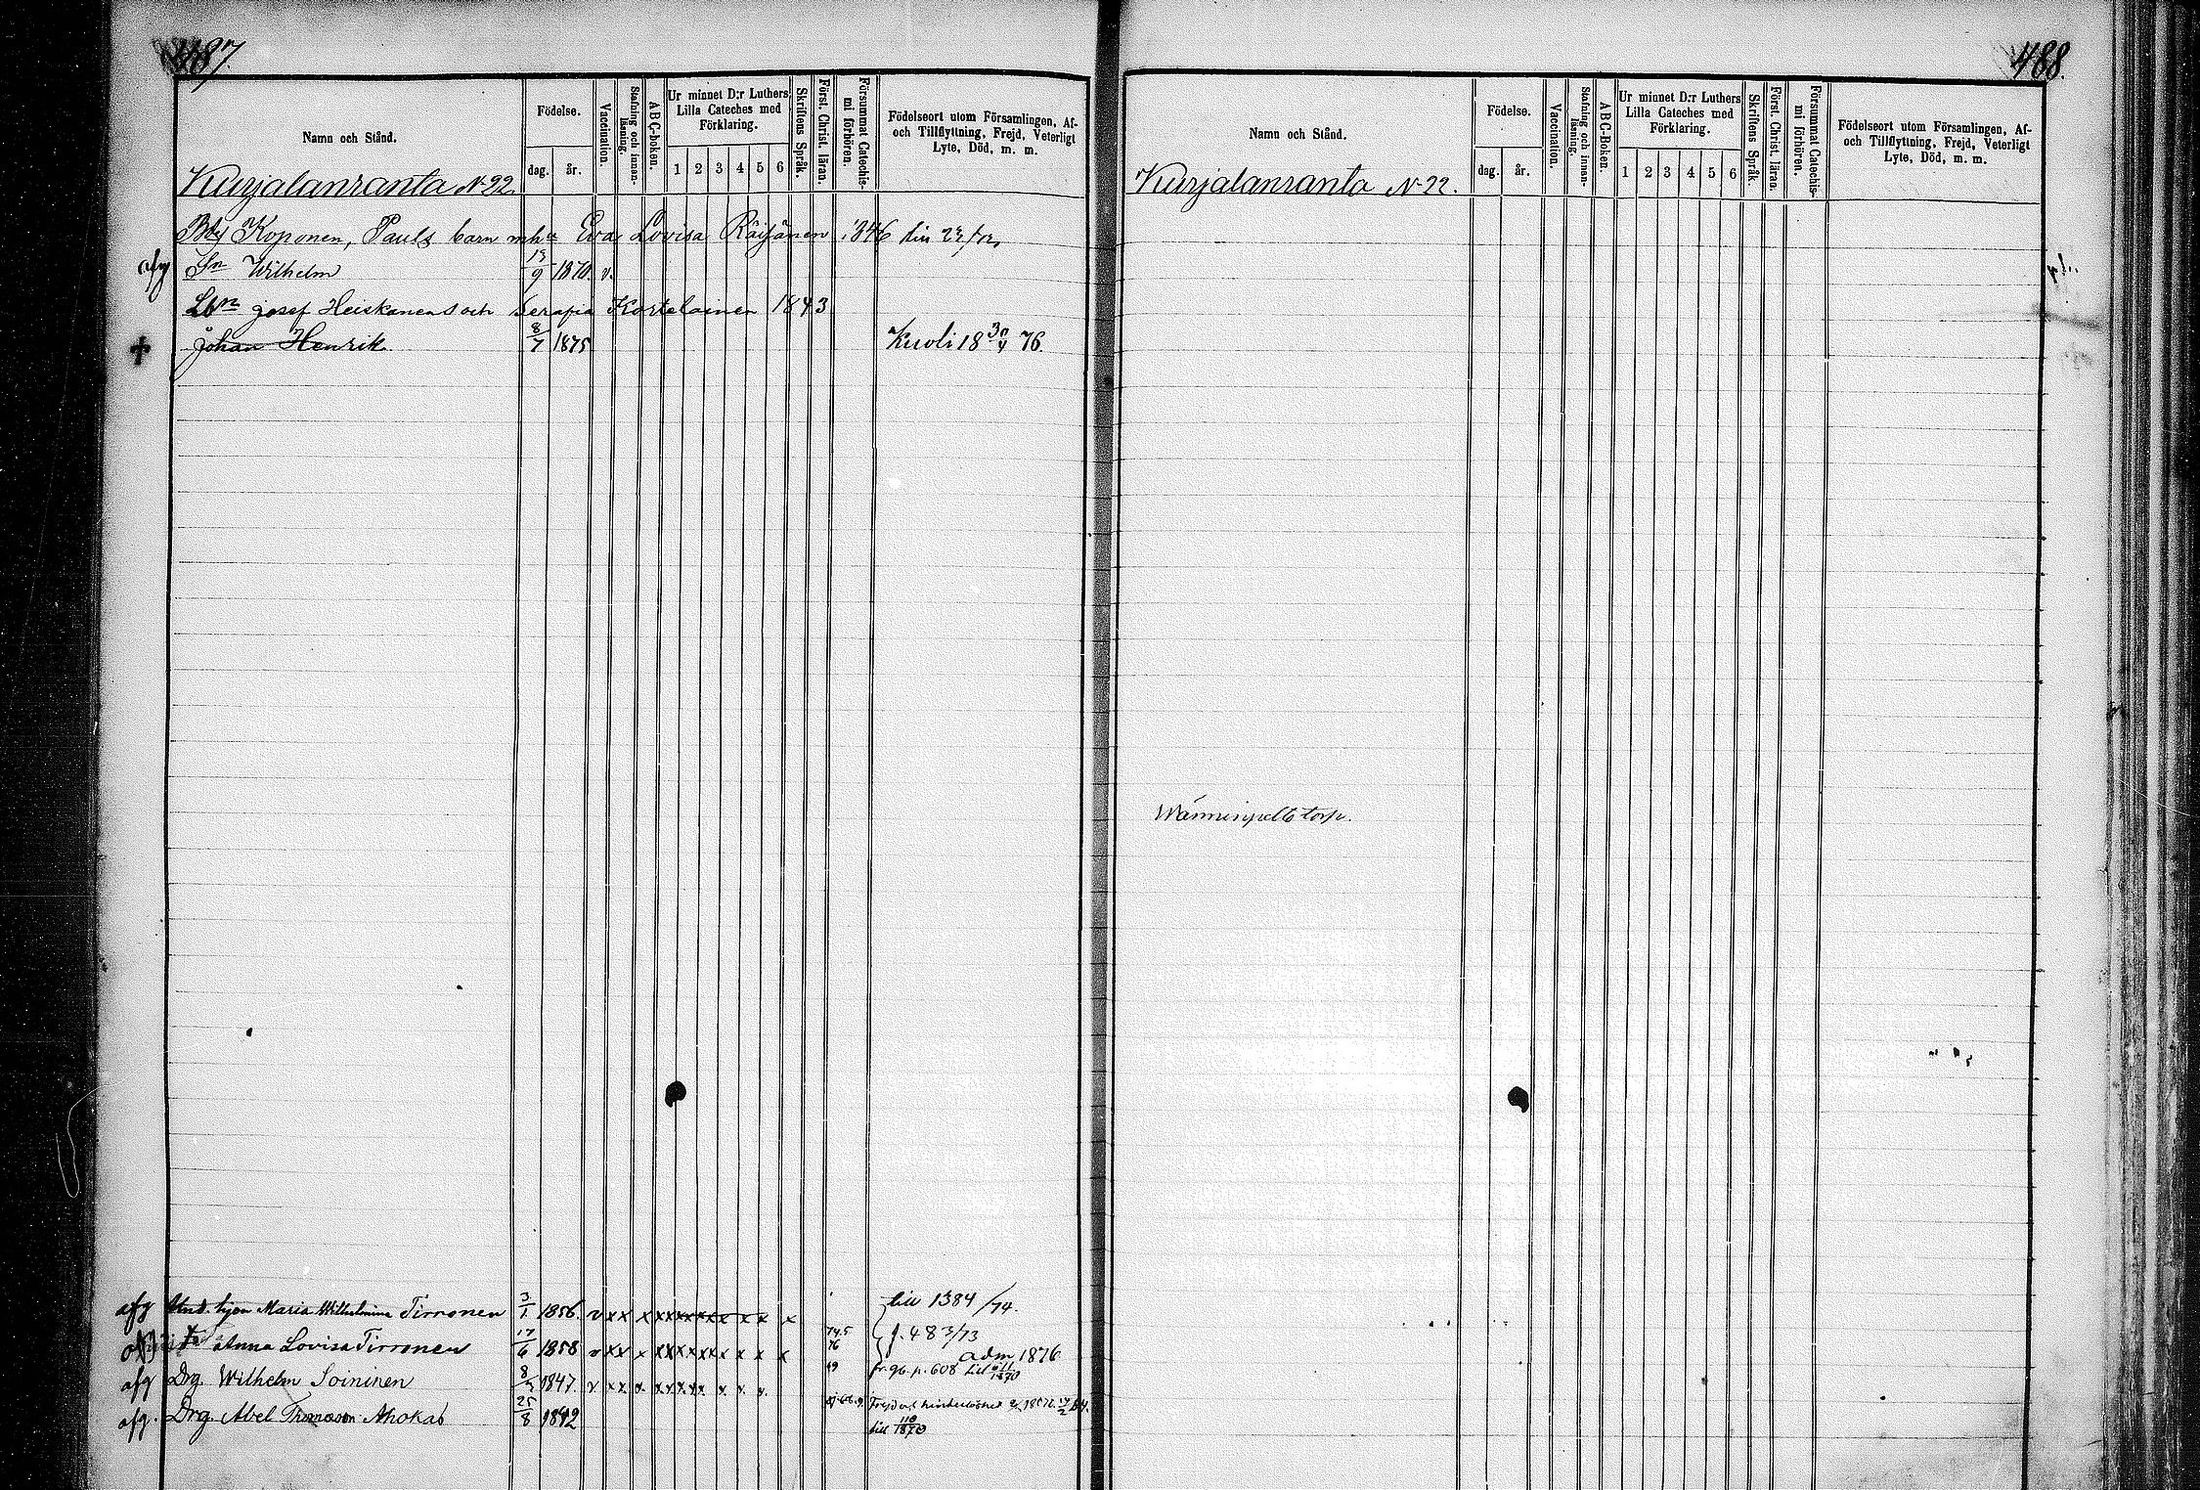 487.
Namn och Stånd.
Födelse.
dag. år.
Vaccination.
Stafning och innan-läsning.
ABC-boken.
Ur minnet D:r Luthers Lilla Cateches med Förklaring.
1 2 3 4 5 6
Skriftens Språk.
Först. Christ. läran.
Försummat Catechis-mi förhören.
Födelseort utom Församlingen, Af- och Tillflyttning, Frejd, Veterligt Lyte, Död, m. m.
Kurjalanranta N-22
Koponen, Pauls barn Eva Lovisa Räisänen 1846
afg Sn Wilhelm 13/9 1870. v.
Josef Heiskanens och Serafia Kortelainen 1843
† Johan Henrik 8/7 1875 Kuoli 18 76.
afg Maria Wilhelmina Tirronen 3/1 1856. v x x x x x x x x x x x x till 1384/74.
Anna Lovisa Tirronen 17/6 1858 v x x x x x x x x x x x x 76 f. 483/73 adm 1876
afg Drg. Wilhelm Soininen 8/5 1847. v x x x x x x x x x x 69 p. 608
afg. Drg Abel Thomasson Ahokas 25/8 1842
till 110/1870
488.
Namn och Stånd.
Födelse.
dag. år.
Vaccination.
Stafning och innan-läsning.
ABC-Boken.
Ur minnet D:r Luthers Lilla Cateches med Förklaring.
1 2 3 4 5 6
Skriftens Språk.
Först. Christ. läran.
Försummat Catechis-mi förhören.
Födelseort utom Församlingen, Af- och Tillflyttning, Frejd, Veterligt Lyte, Död, m. m.
Kurjalanranta N-22.
torp.